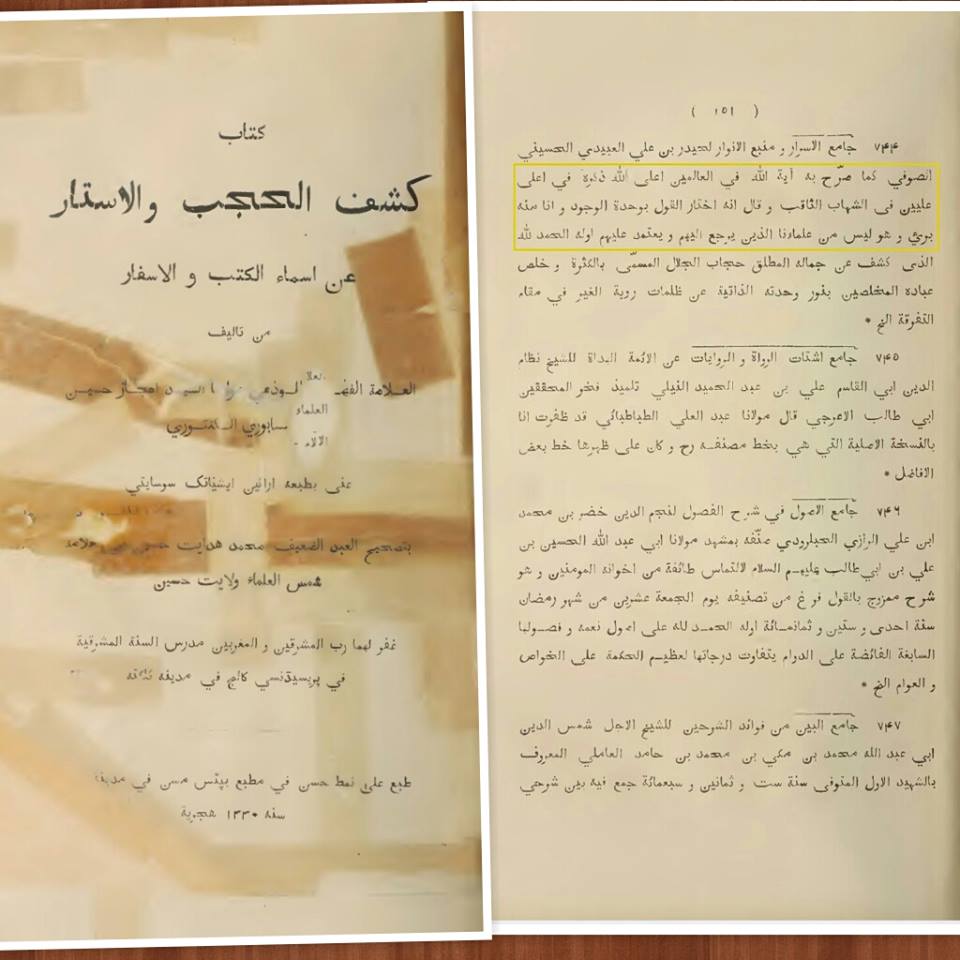 كتاب
كشف الحجب والاستار
عن اسماء الكتب و الاسفار
من تاليف
العلامة
العلماء
عنى بطبعه ايشياتک سوسايتي
بتصحيح العبد الضعيف محمد هدايت حسين
شمس العلماء ولايت حسين
غفر لهما رب المشرقين و المغربين مدرس السنة المشرقية
في پريسيدنسي كالج في مدينة
طبع على نمط حسن في مطبع بپتس مسن في
سنه ١٣٣٠ هجرية
( ١٥١ )
٧۴۴ جامع الاسرار و منبع الانوار لحيدر بن علي العبيدي الحسيني
الصوفي كما صرّح به آية الله في العالمين اعلى الله ذكره في اعلى
عليين في الشهاب الثاقب و قال انه اختار القول بوحدة الوجود و انا منه
بريٴ و هو ليس من علمائنا الذين يرجع اليهم و يعتمد عليهم اوله الحمد لله
الذى كشف عن جماله المطلق حجاب الجلال المسمّى بالكثرة و خلص
عباده المخلصين بنور وحدته الذاتية عن ظلمات روية الغير في مقام
التفرقة الخ *
٧۴٥ جامع اشتات الرواة و الروايات عن الائمة الهداة للشيخ نظام
الدين ابي القاسم علي بن عبد الحميد النيلي تلميذ فخر المحققين
ابي طالب الاعرجي قال مولانا عبد العلي الطباطبائي قد ظفرت انا
بالنسخة الاصلية التي هي بخط مصنفه رح و كان على ظهرها خط بعض
الافاضل *
٧۴٦ جامع الاصول في شرح الفصول لنجم الدين خضر بن محمد
ابن علي الرازي الحبلرودي صنّفه بمشهد مولانا ابي عبد الله الحسين بن
علي بن ابي طالب عليهم السلام لالتماس طائفة من اخوانه المومنين و هو
شرح ممزوج بالقول فرغ من تصنيفه يوم الجمعة عشرين من شهر رمضان
سنة احدى و ستين و ثمانمائة اوله الحمد لله على اصول نعمه و فصولها
السابغة الفائضة على الدوام يتفاوت درجاتها لعظيم الحكمة على الخواص
و العوام الخ *
٧۴٧ جامع البين من فوائد الشرحين للشيخ الاجل شمس الدين
ابي عبد الله محمد بن مكي بن محمد بن حامد العاملي المعروف
بالشهيد الاول المتوفى سنة ست و ثمانين و سبعمائة جمع فيه بين شرحي